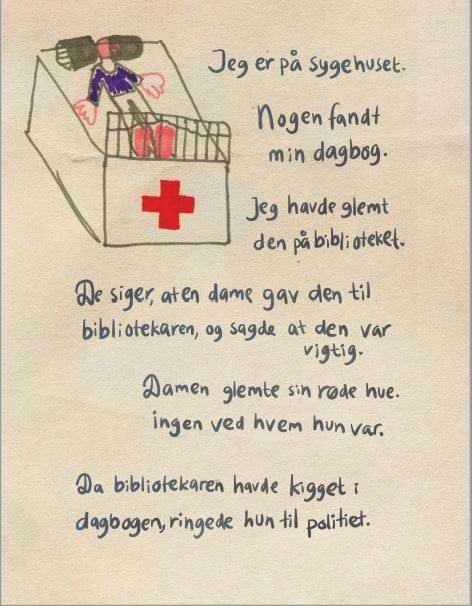 Jeg er på sygehuset.
Nogen fandt
min dagbog.
Jeg havde glemt
den på biblioteket.
De siger, at en dame gav den til
bibliotekaren, og sagde at den var
vigtig.
Damen glemte sin røde hue.
ingen ved hvem hun var.
Da bibliotekaren havde kigget i
dagbogen, ringede hun til politiet.